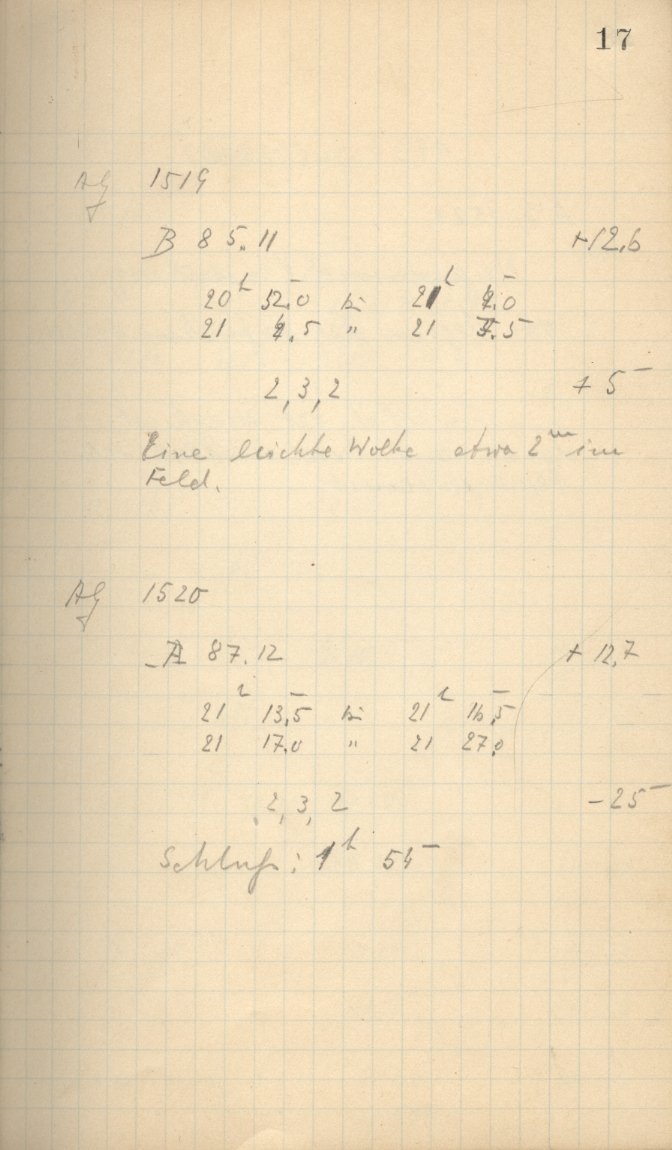 17
AG 1519
B 85.11 +12,6
20h 52,0 bis 21h 2,0
21 2,5 " 21 5.5
2,3,2 + 5m
Eine leichte Wolke etwa 2m im
Feld.
AG 1520
A 87.12 + 12,7
21h 13,5 bis 21h 16,5
21 17,0 " 21 27,0
2,3,2 - 25m
Schluß: 1h 54m